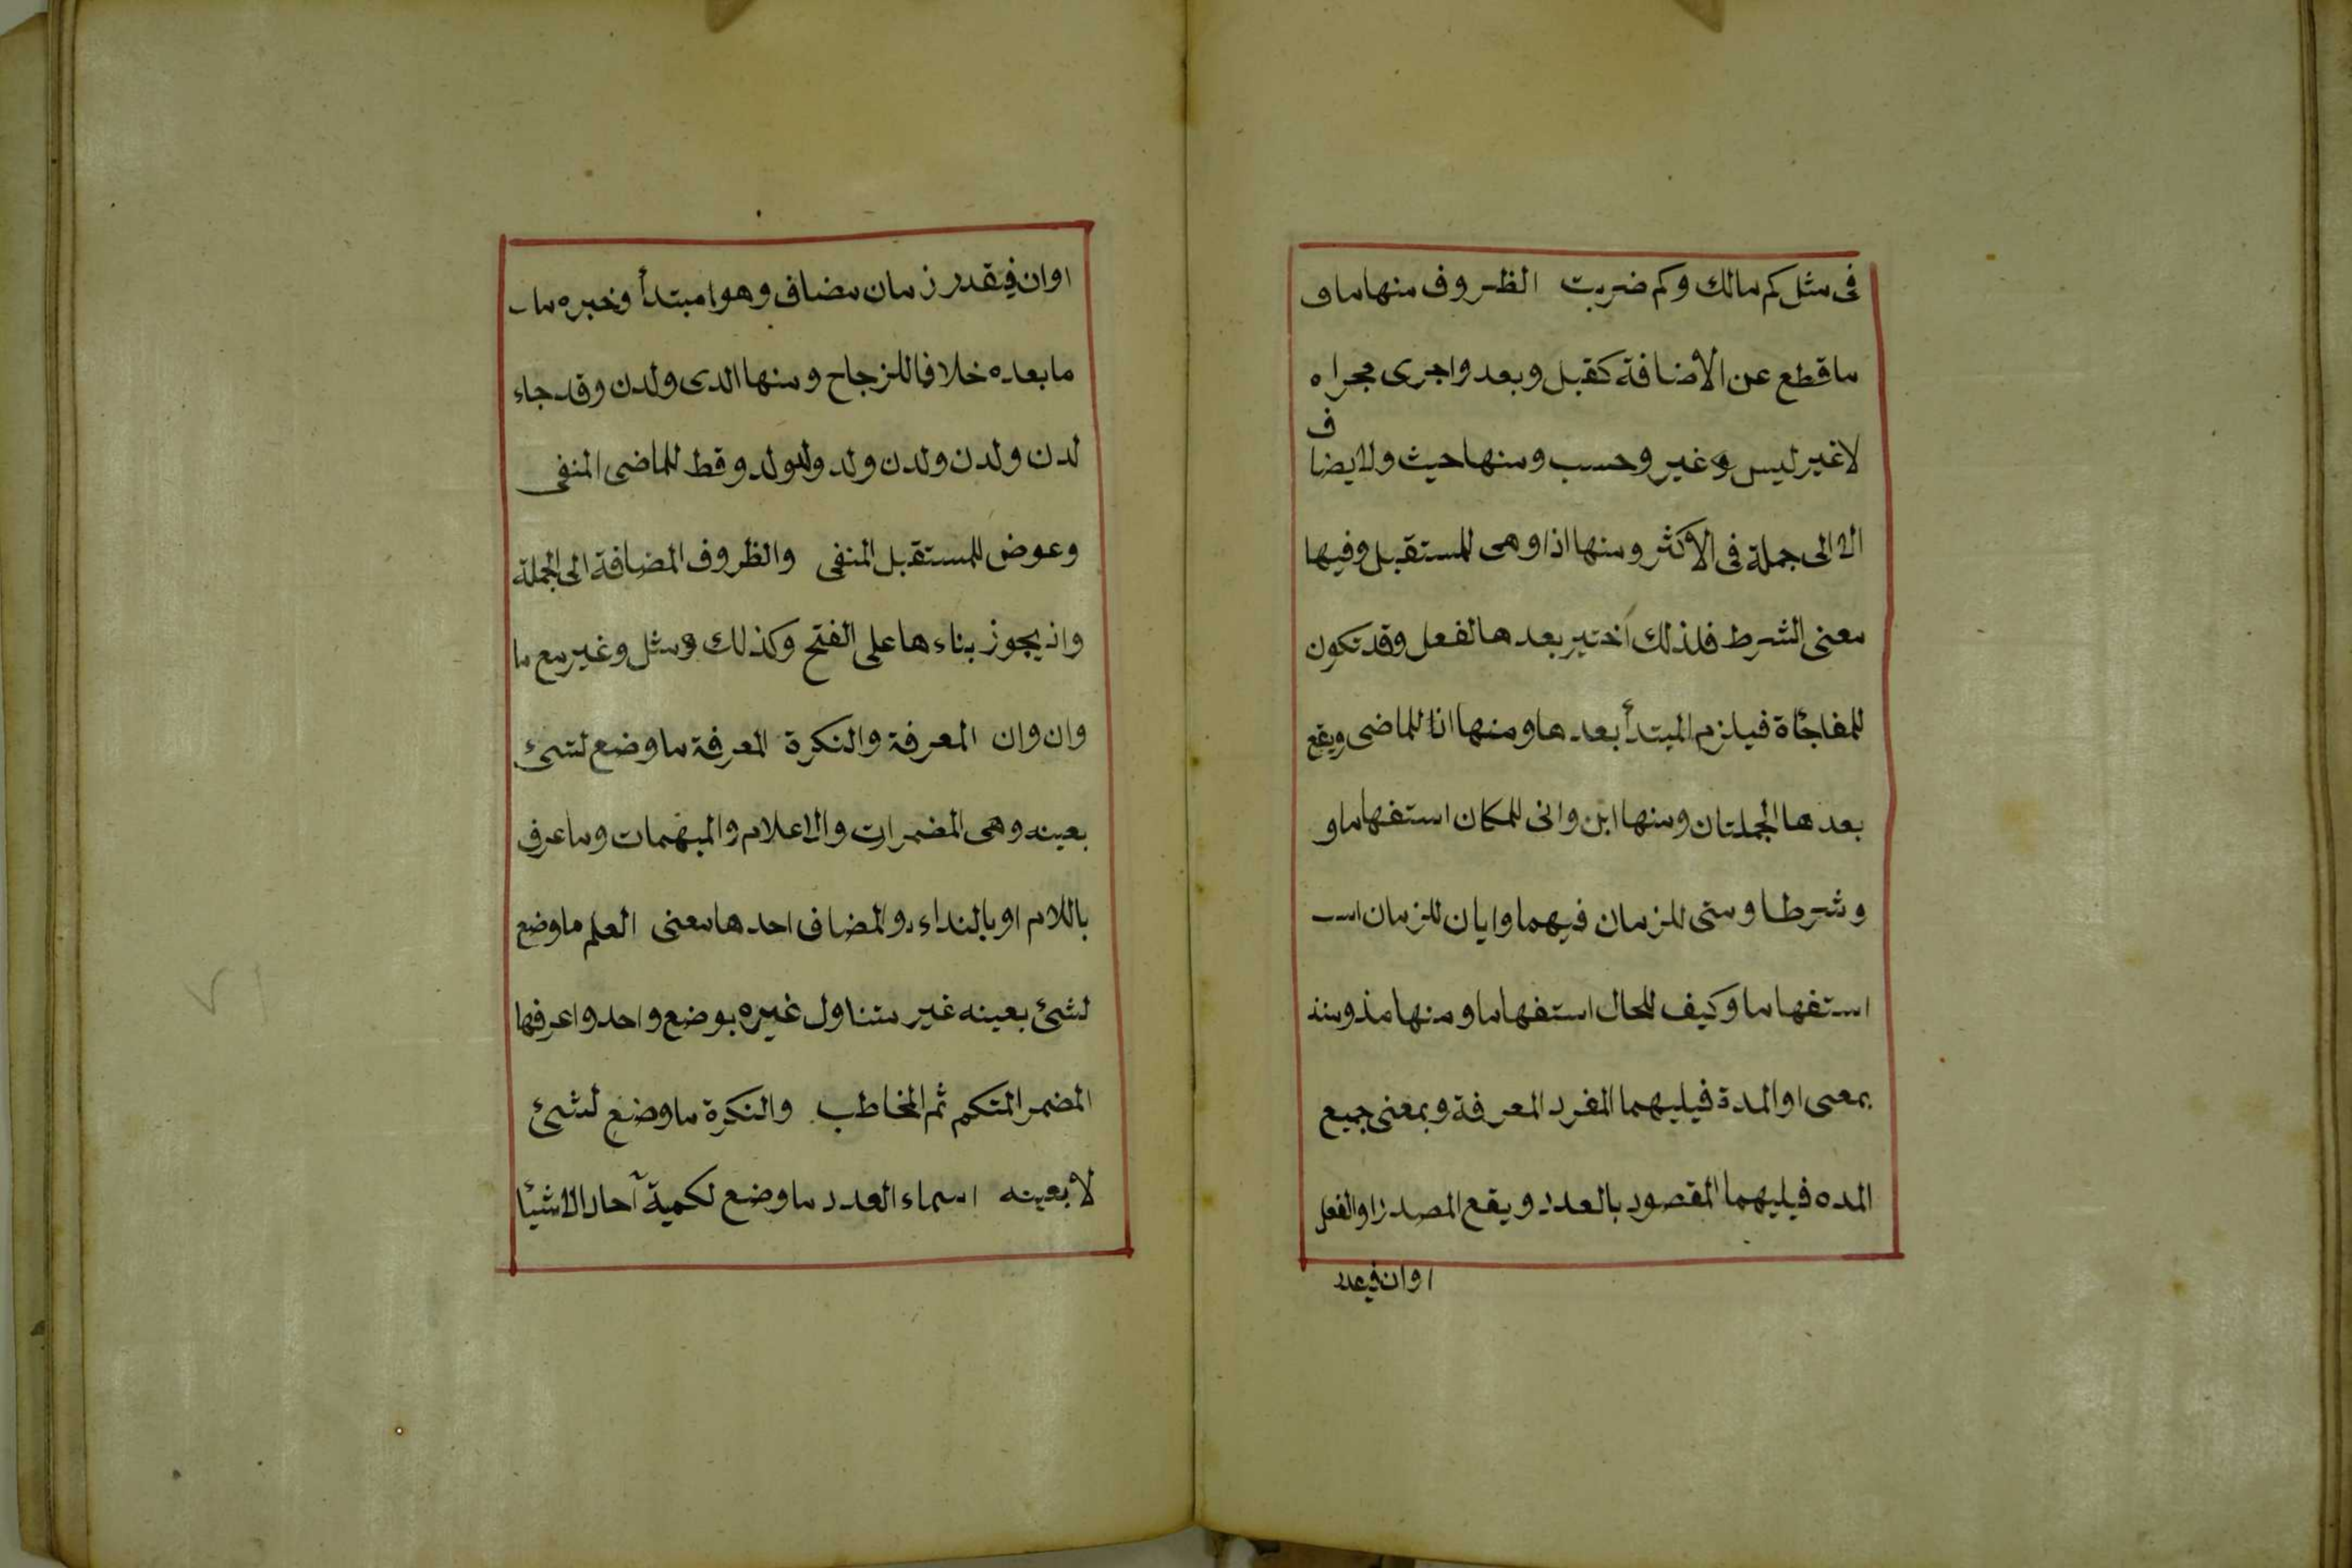 فى مثل كم مالك وكم ضربت الظروف منها ما ف
ما قطع عن الاضافة كقبل وبعد واجرى مجراه
لا غير ليس وغير وحسب ومنها حيث ولا يضاف
الا الى جملة فى الاكثر ومنها اذا وهى للمستقبل وفيها
معنى الشرط فلذلك اختير بعدها لفعل وقد تكون
للمفاجأة فيلزم المبتدأ بعدها ومنها اذا للماضى ويقع
بعدها الجملتان ومنها اين وانى للمكان استفهاما و
وشرطا ومتى للزمان فيهما وايان للزمان است
استفهاما وكيف للحال استفهاما ومنها مذ ومنذ
بمعى او المدة فيليهما المفرد المعرفة وبمعنى جميع
المده فيليهما المقصود بالعدد ويقع المصدر او الفعل
اوان فيعدد
اوان فيقدر زمان مضاف وهوا مبتدأ وخبره ما
ما بعده خلافا للزجاج ومنها الدى ولدن وقد جاء
لدن ولدن ولدن ولد ولد ولد وقط للماضى المنفى
وعوض للمستقبل المنفى والظروف المضافة الى الجملة
واذ يجوز بناءها على الفتح وكذلك ومثل وغير مع ما
وان وان المعرفة والنكرة المعرفة ما وضع لشىء
بعينه وهى المضمرات والاعلام والمبهمات وما عرف
باللام او بالنداء والمضاف احدها معنى العلم ما وضع
لشئ بعينه غير متناول غيره بوضع واحد واعرفها
المضمر المتكم ثم المخاطب والنكرة ما وضع لشئ
لا بعينه اسماء العدد ما وضع لكمية آحاد الاشيأ